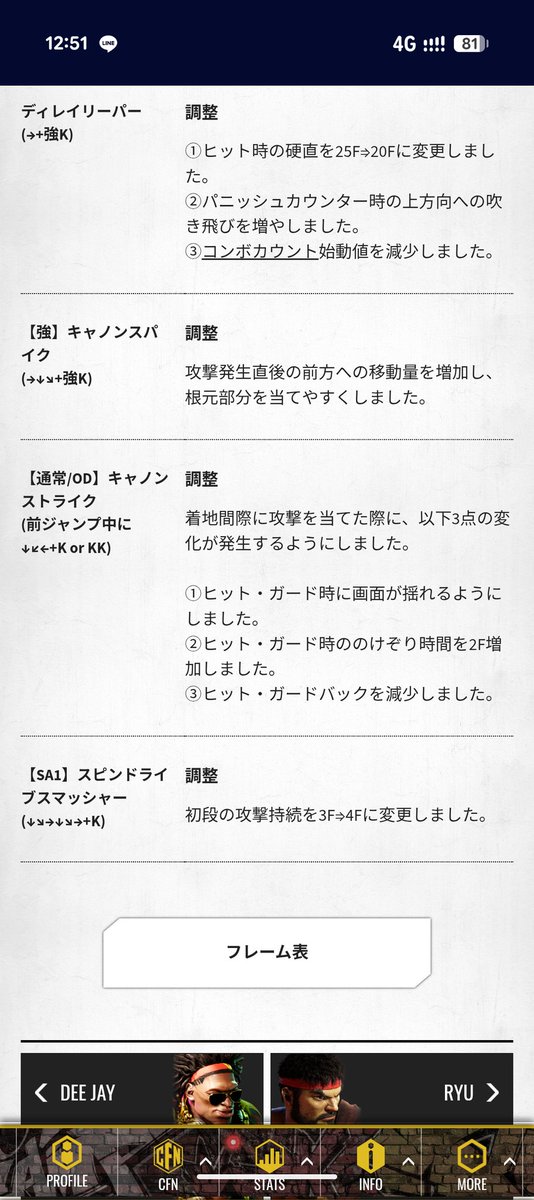 12:51
LINE
4G
81
ディレイリーパー
(→+強K)
調整
①ヒット時の硬直を25F⇒20Fに変更しまし
た。
②パニッシュカウンター時の上方向への吹
き飛びを増やしました。
③コンボカウント始動値を減少しました。
【強】キャノンスパ
イク
(→↓↘+強K)
調整
攻撃発生直後の前方への移動量を増加し、
根元部分を当てやすくしました。
【通常/OD】キャノン
ストライク
(前ジャンプ中に
↓↙←+K or KK)
調整
着地間際に攻撃を当てた際に、以下3点の変
化が発生するようにしました。
①ヒット・ガード時に画面が揺れるように
しました。
②ヒット・ガード時ののけぞり時間を2F増
加しました。
③ヒット・ガードバックを減少しました。
【SA1】スピンドライ
ブスマッシャー
(↓↘→↓↘→+K)
調整
初段の攻撃持続を3F⇒4Fに変更しました。
フレーム表
DEE JAY
RYU
PROFILE
CFN
CFN
STATS
INFO
MORE